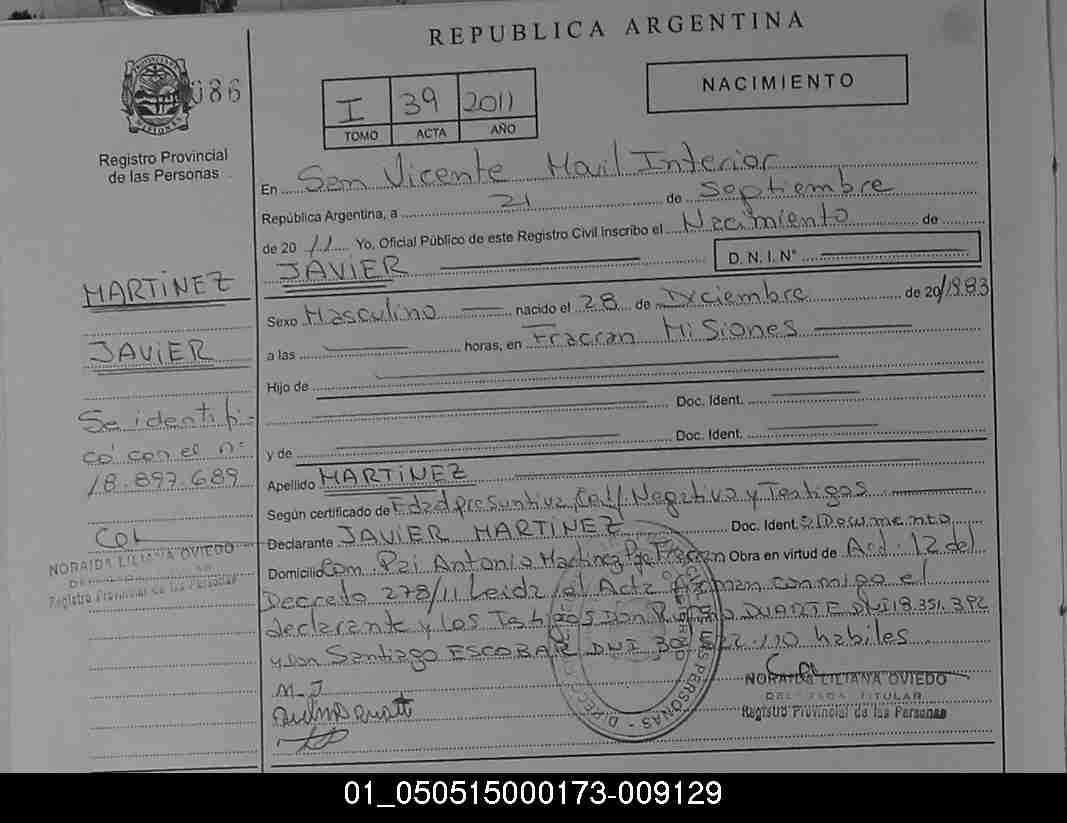 REPUBLICA ARGENTINA
086
I 39 2011
TOMO ACTA AÑO
NACIMIENTO
PROVINCIA
MISIONES
Registro Provincial
de las Personas
En San Vicente Movil Interior
República Argentina, a 21 de Septiembre
de 2011 Yo, Oficial Público de este Registro Civil Inscribo el Nacimiento de
JAVIER D. N. I. N°
Sexo Masculino nacido el 28 de Diciembre de 20/1983
a las horas, en Fracran Misiones
Hijo de
Doc. Ident.
y de Doc. Ident.
Apellido MARTINEZ
Según certificado de Edad presuntiva, Cert/ Negativo y Testigos
Declarante JAVIER MARTINEZ Doc. Ident. S/Documento
Domicilio Com. Pai Antonio Martinez Fracran Obra en virtud de Art. 12 del
Decreto 278/11 Leida el Acta firman conmigo el
declarante y los Testigos Don DUARTE DNI 18.351.392
y Don Santiago ESCOBAR DNI 110 habiles
M. J
NORAIDA LILIANA OVIEDO
DELEGADA TITULAR
Registro Provincial de las Personas
MARTINEZ
JAVIER
Se identifi-
có con el n:
18.897.689
NORAIDA LILIANA OVIEDO
Registro Provincial de las Personas
01_050515000173-009129